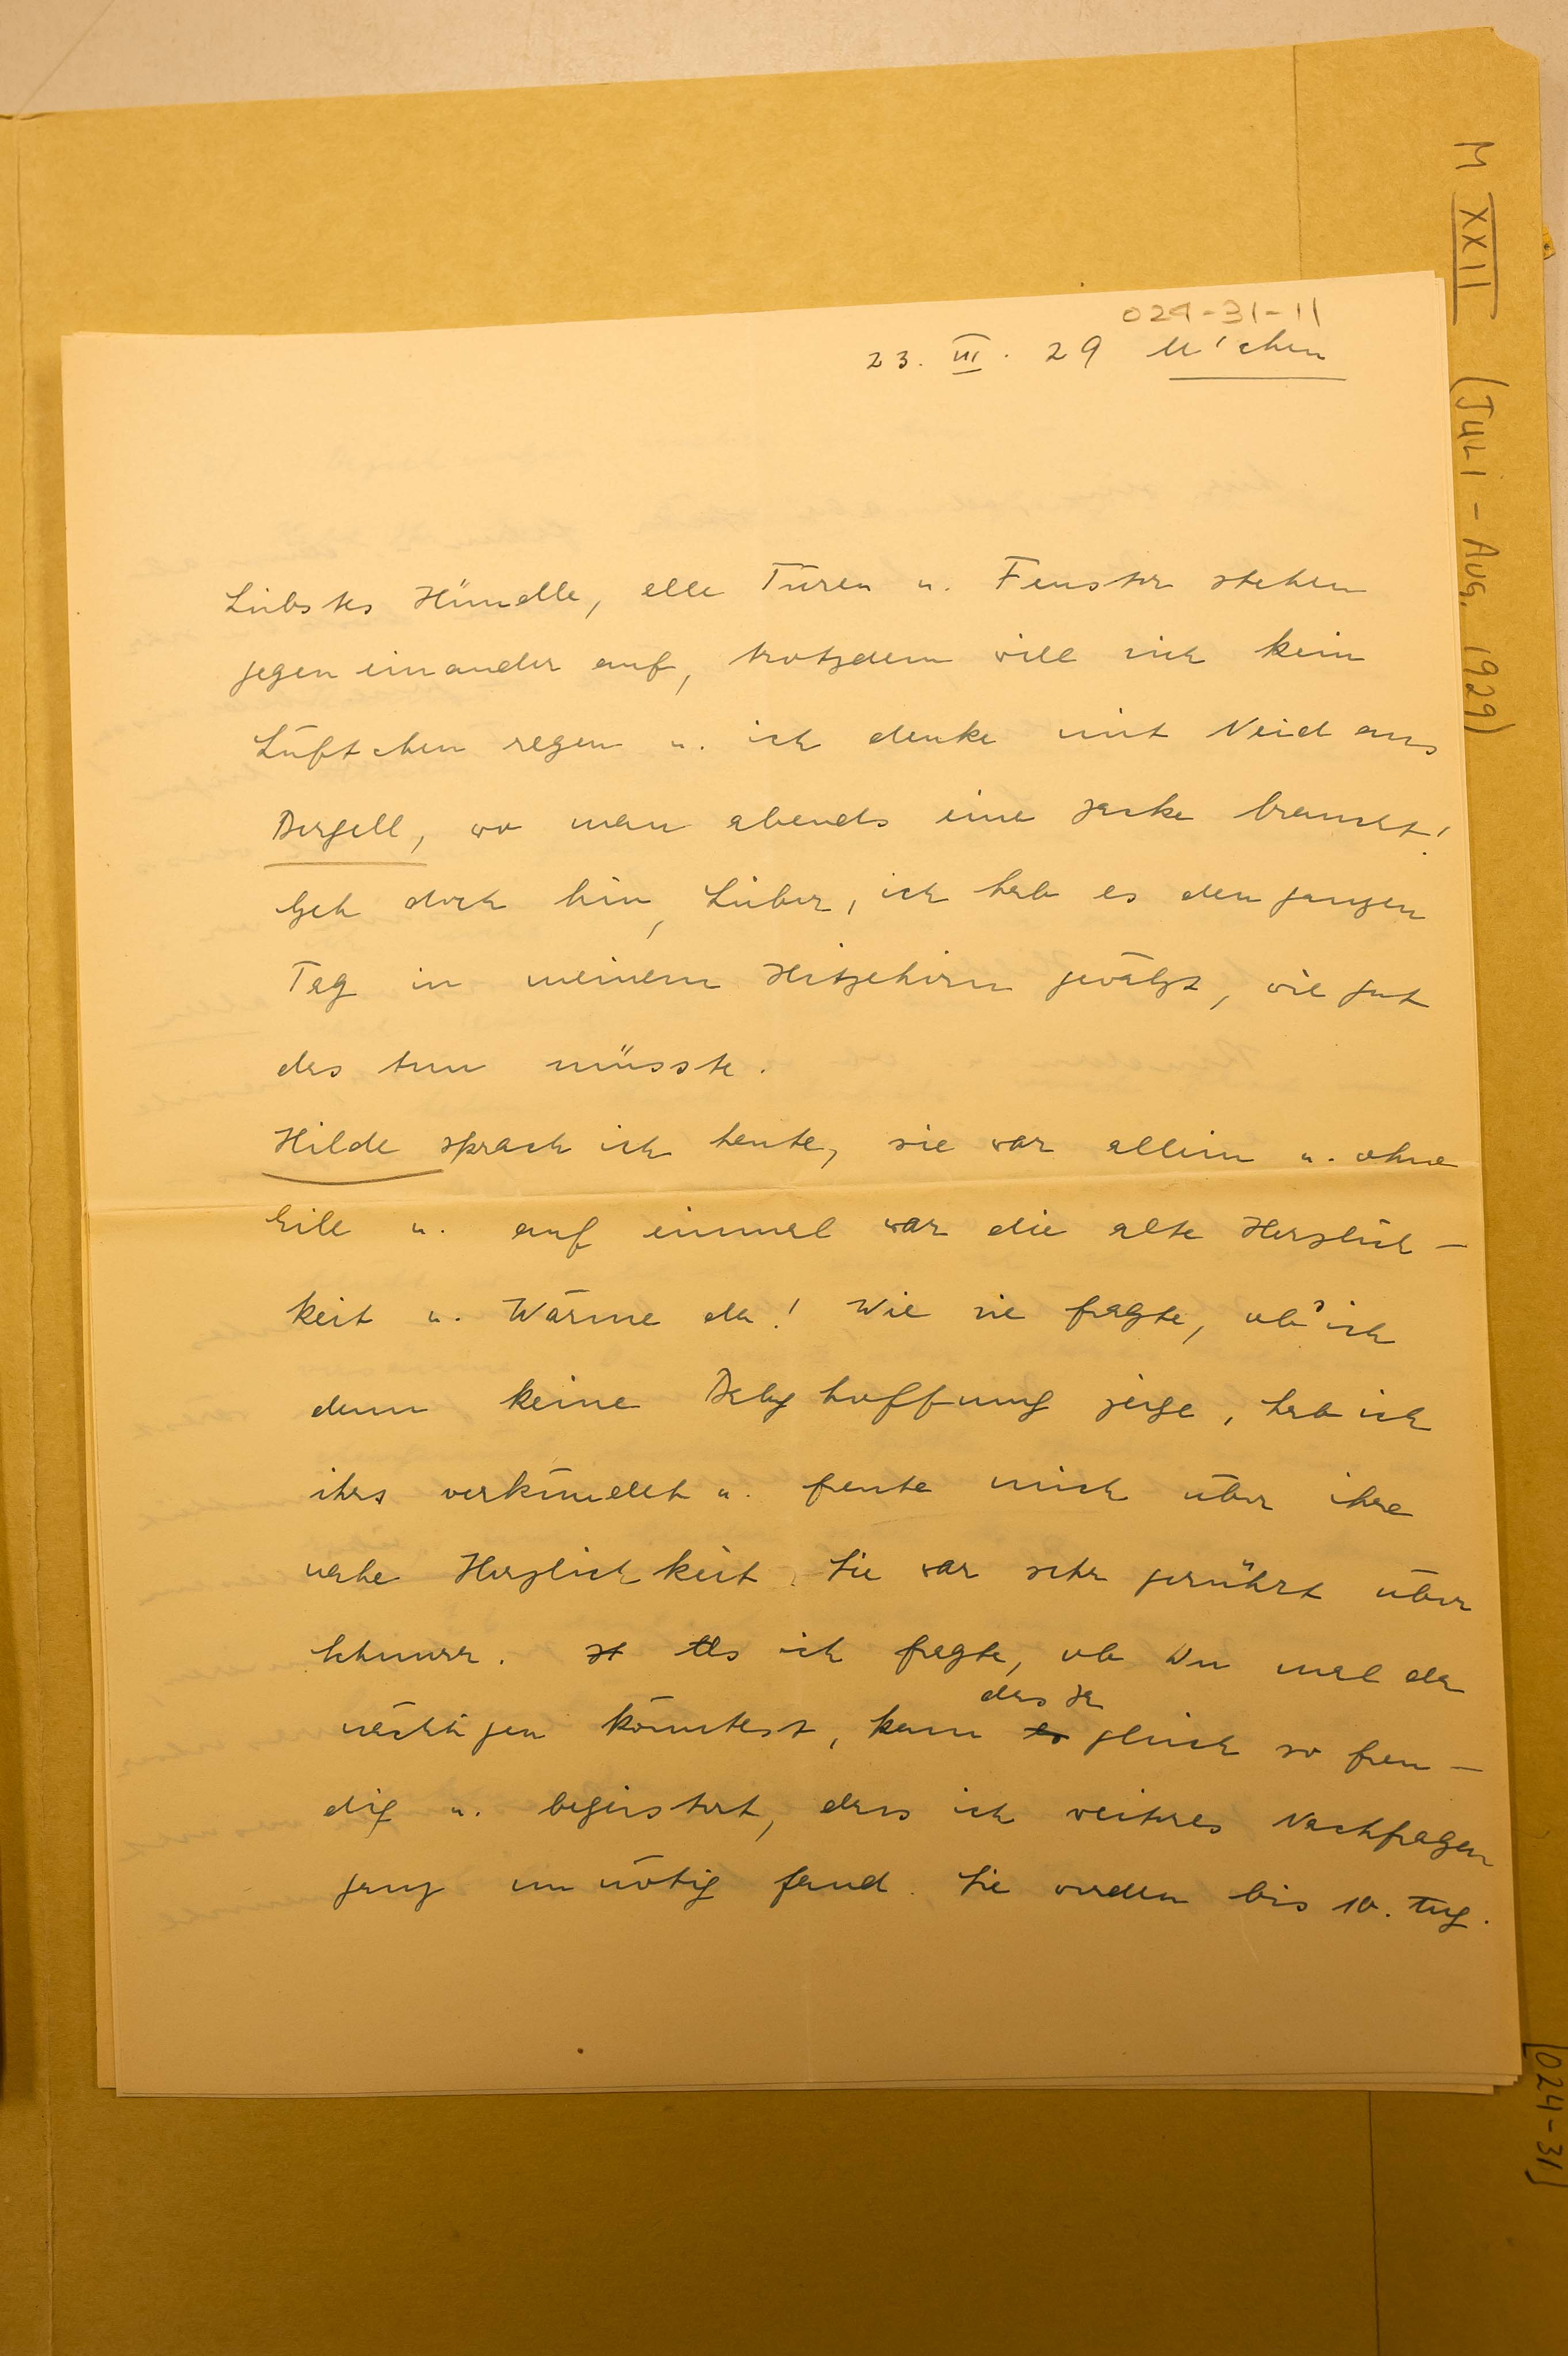 024-31-11
23. III. 29 M'chen
Liebstes Hündlle, alle Türen u. Fenster stehen
gegeneinander auf, trotzdem will sich kein
Lüftchen regen u. ich denke mit Neid ans
Bergell, wo man abends eine Jacke braucht!
Geh doch hin, Lieber, ich hab es den ganzen
Tag in meinem Hitzehirn gewälzt, wie gut
das tun müsste.
Hilde sprach ich heute, sie war allein u. ohne
Eile u. auf einmal war die alte Herzlich-
keit u. Wärme da! Wie sie fragte, ob ich
denn keine Babyhoffnung zeige, hab ich
ihrs verkündet u. freute mich über ihre
nahe Herzlichkeit. Sie war sehr gerührt über
Schnurr. Als ich fragte, ob Du mal da
das Ja
nächtigen könntest, kam es gleich so freu-
dig u. begeistert, dass ich weiteres Nachfragen
ganz unnötig fand. Sie werden bis 10. Aug.
M XXII (JULI - AUG. 1929)
[024-31]